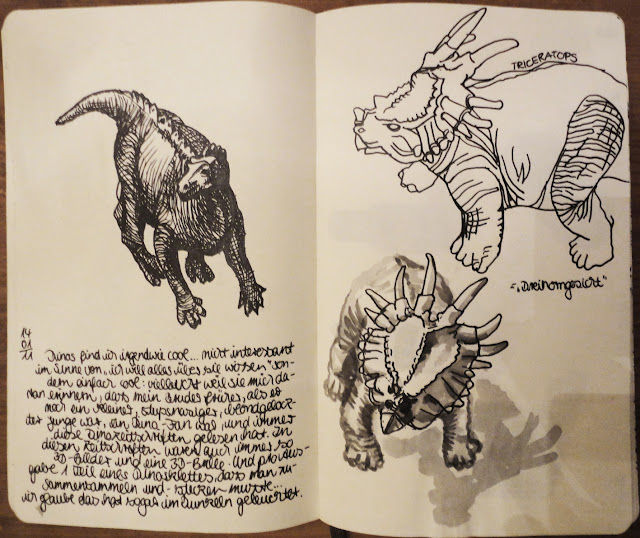 14
01
11
Dinos find ich irgendwie cool... nicht interessant
im Sinne von „ich will alles über sie wissen" son-
dern einfach cool: vielleicht weil sie mich da-
ran erinnern, dass mein Bruder früher, als er
noch ein kleiner, stupsnasiger, blondgelock-
ter Junge war, ein Dino-Fan war und immer
diese Dinozeitschriften gelesen hat. In
diesen Zeitschriften waren auch immer so
3D-Bilder und eine 3D-Brille. Und pro Aus-
gabe 1 Teil eines Dinoskeletts, das man zu-
sammensammeln und -stecken musste...
ich glaube das hat sogar im Dunkeln geleuchtet.
TRICERATOPS
= „Dreihorngesicht"